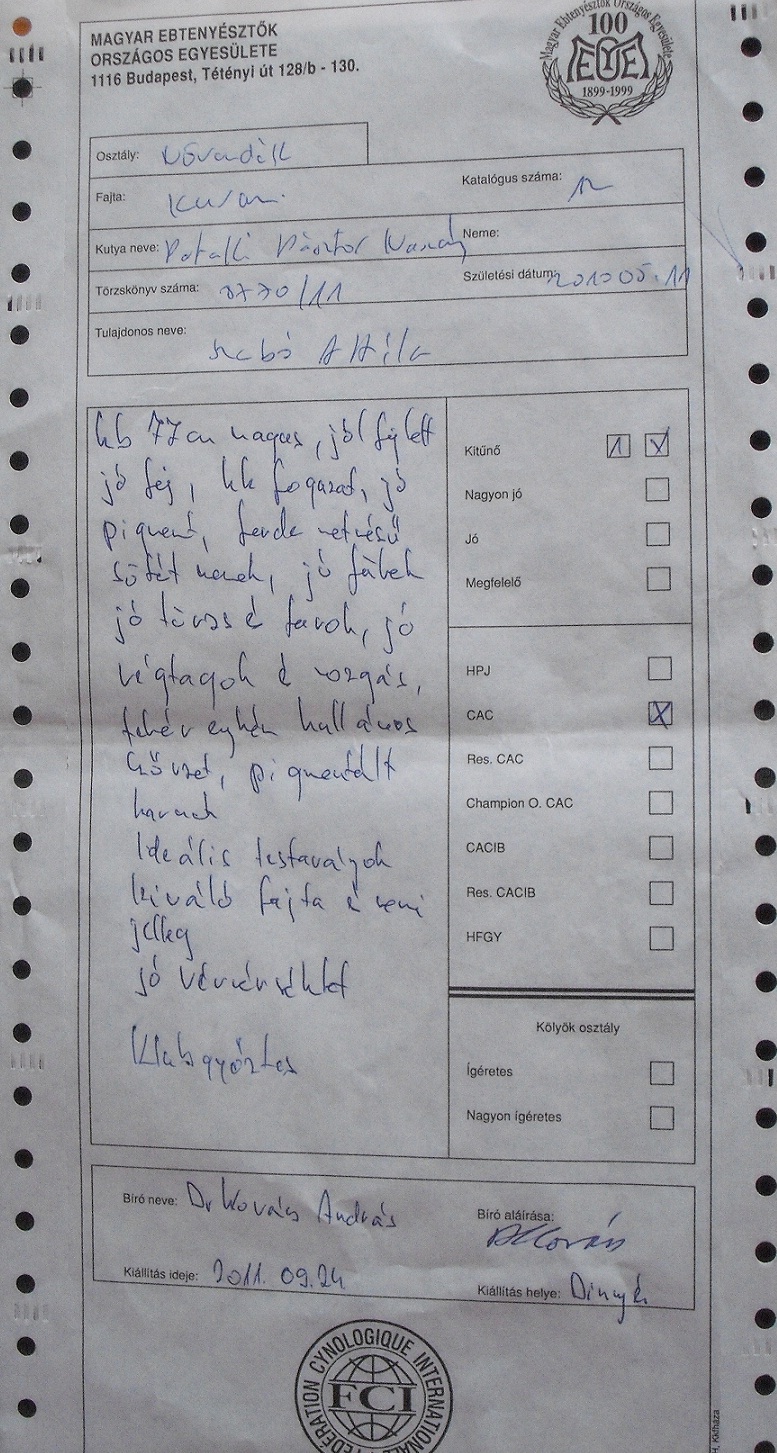 MAGYAR EBTENYÉSZTŐK
ORSZÁGOS EGYESÜLETE
1116 Budapest, Tétényi út 128/b - 130.
Magyar Ebtenyésztők Országos Egyesülete
100
MEOE
1899-1999
Osztály: Növendék
Fajta: Kuvasz
Katalógus száma: 12
Kutya neve: Pásztor
Neme:
Törzskönyv száma: 3770/11
Születési dátum: 2010 05.11
Tulajdonos neve: Szabó Attila
kb 77 cm magas, jól fejlett
jó fej, kk fogazat, jó
pigment, ferde metszésű
sötét szemek, jó fülek
jó törzs é farok, jó
végtagok é mozgás,
fehér enyhén hullámos
szőrzet, pigmentált
karmok
Ideális testarányok
kiváló fajta é nemi
jelleg
jó vérmérséklet
Klubgyőztes
Kitűnő 1
Nagyon jó
Jó
Megfelelő
HPJ
CAC X
Res. CAC
Champion O. CAC
CACIB
Res. CACIB
HFGY
Kölyök osztály
Ígéretes
Nagyon ígéretes
Bíró neve: Dr Kovács András
Bíró aláírása:
Kiállítás ideje: 2011. 09.24
Kiállítás helye: Dinnyés
FÉDÉRATION CYNOLOGIQUE INTERNATIONALE
FCI